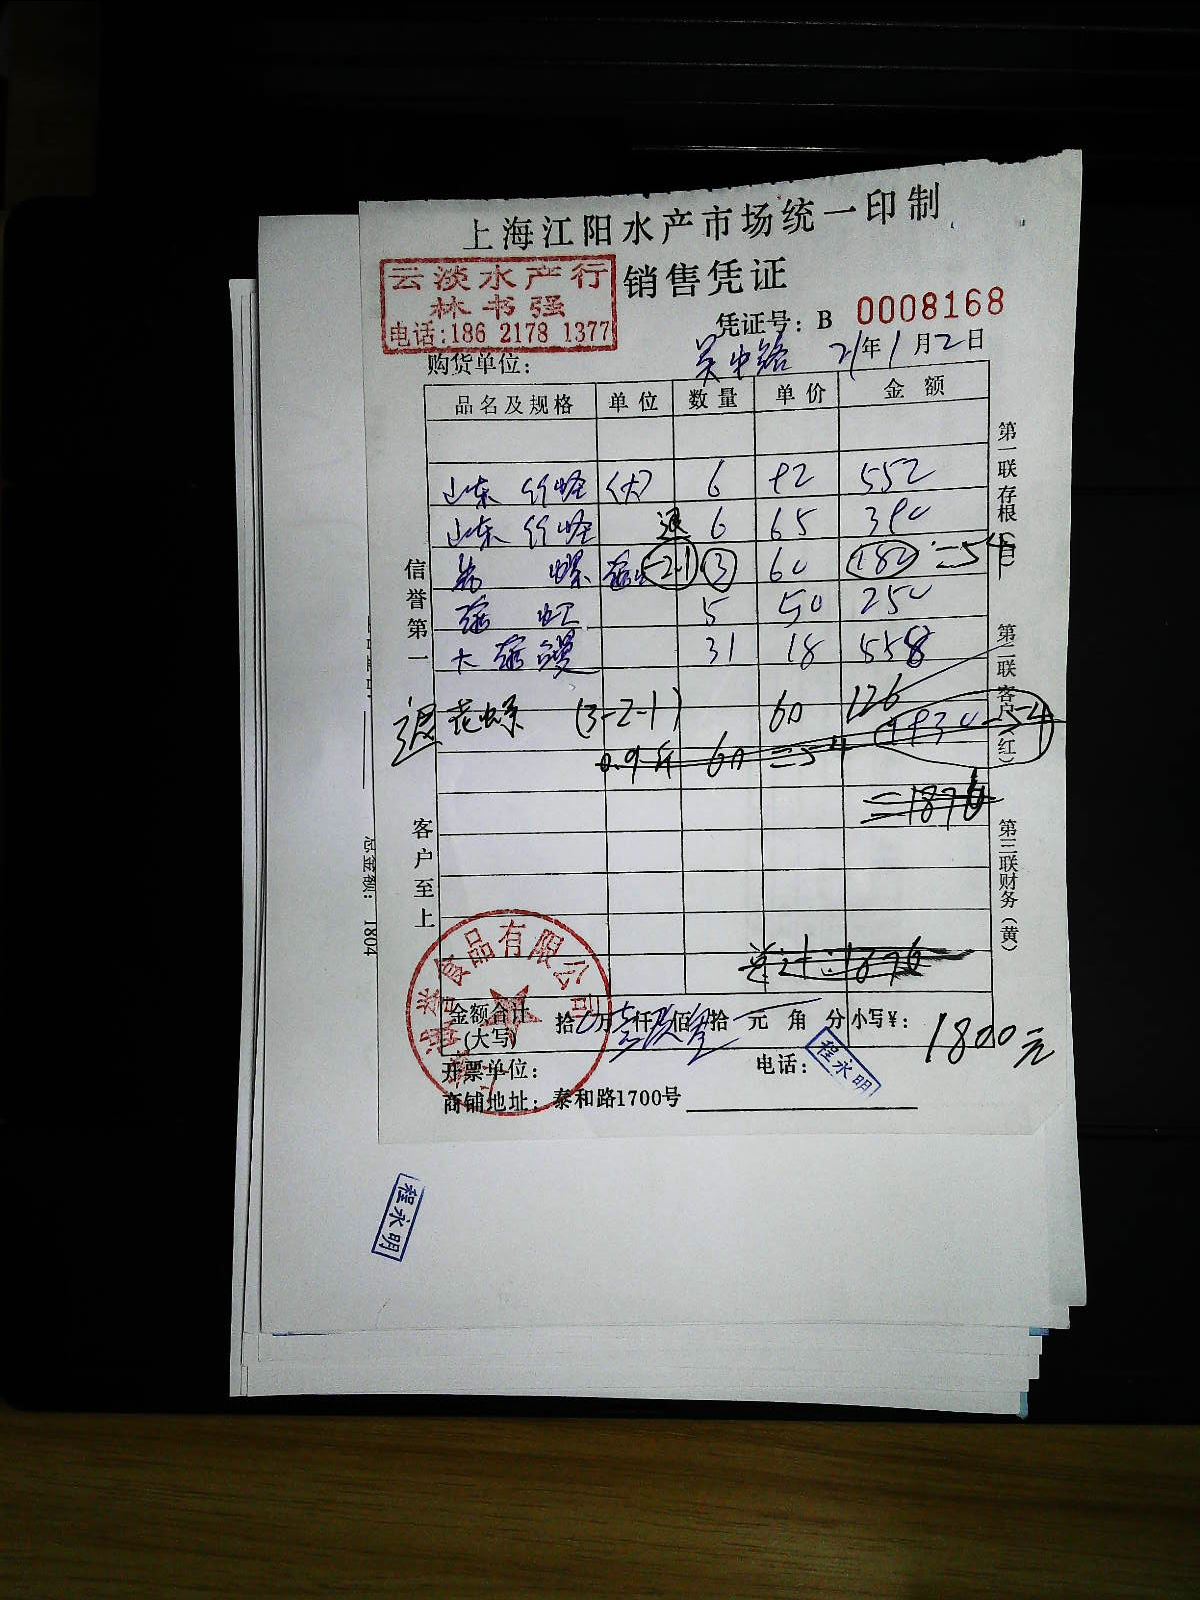 上海江阳水产市场统一印制
云淡水产行
林书强
电话:186 2178 1377
销售凭证
凭证号: B 0008168
购货单位: 吴中路 21年1月2日
品名及规格 单位 数量 单价 金额
山东 竹蛏 (大) 6 92 552
山东 竹蛏 6 65 390
螺 退 2.1 3 60 180 -54
5 50 250
大 31 18 558
退 花螺 (3-2.1) 60 126
0.9斤 60 =54 1930-54
=1876
总计:1876
信誉第一
客户至上
第一联存根(白)
第二联客户(红)
第三联财务(黄)
食品有限公司
金额合计(大写) 拾 万 仟 佰 拾 元 角 分 小写¥: 1800元
开票单位: 电话: 程永明
商铺地址: 泰和路1700号
总金额: 1804
程永明